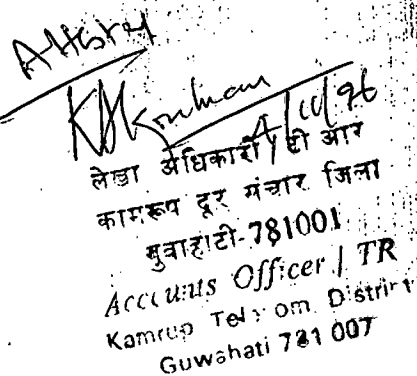 4/11/96
लेखा अधिकारी / टी आर
कामरूप दूर संचार जिला
गुवाहाटी-781001
Accounts Officer / TR
Kamrup Telecom District
Guwahati 781 007